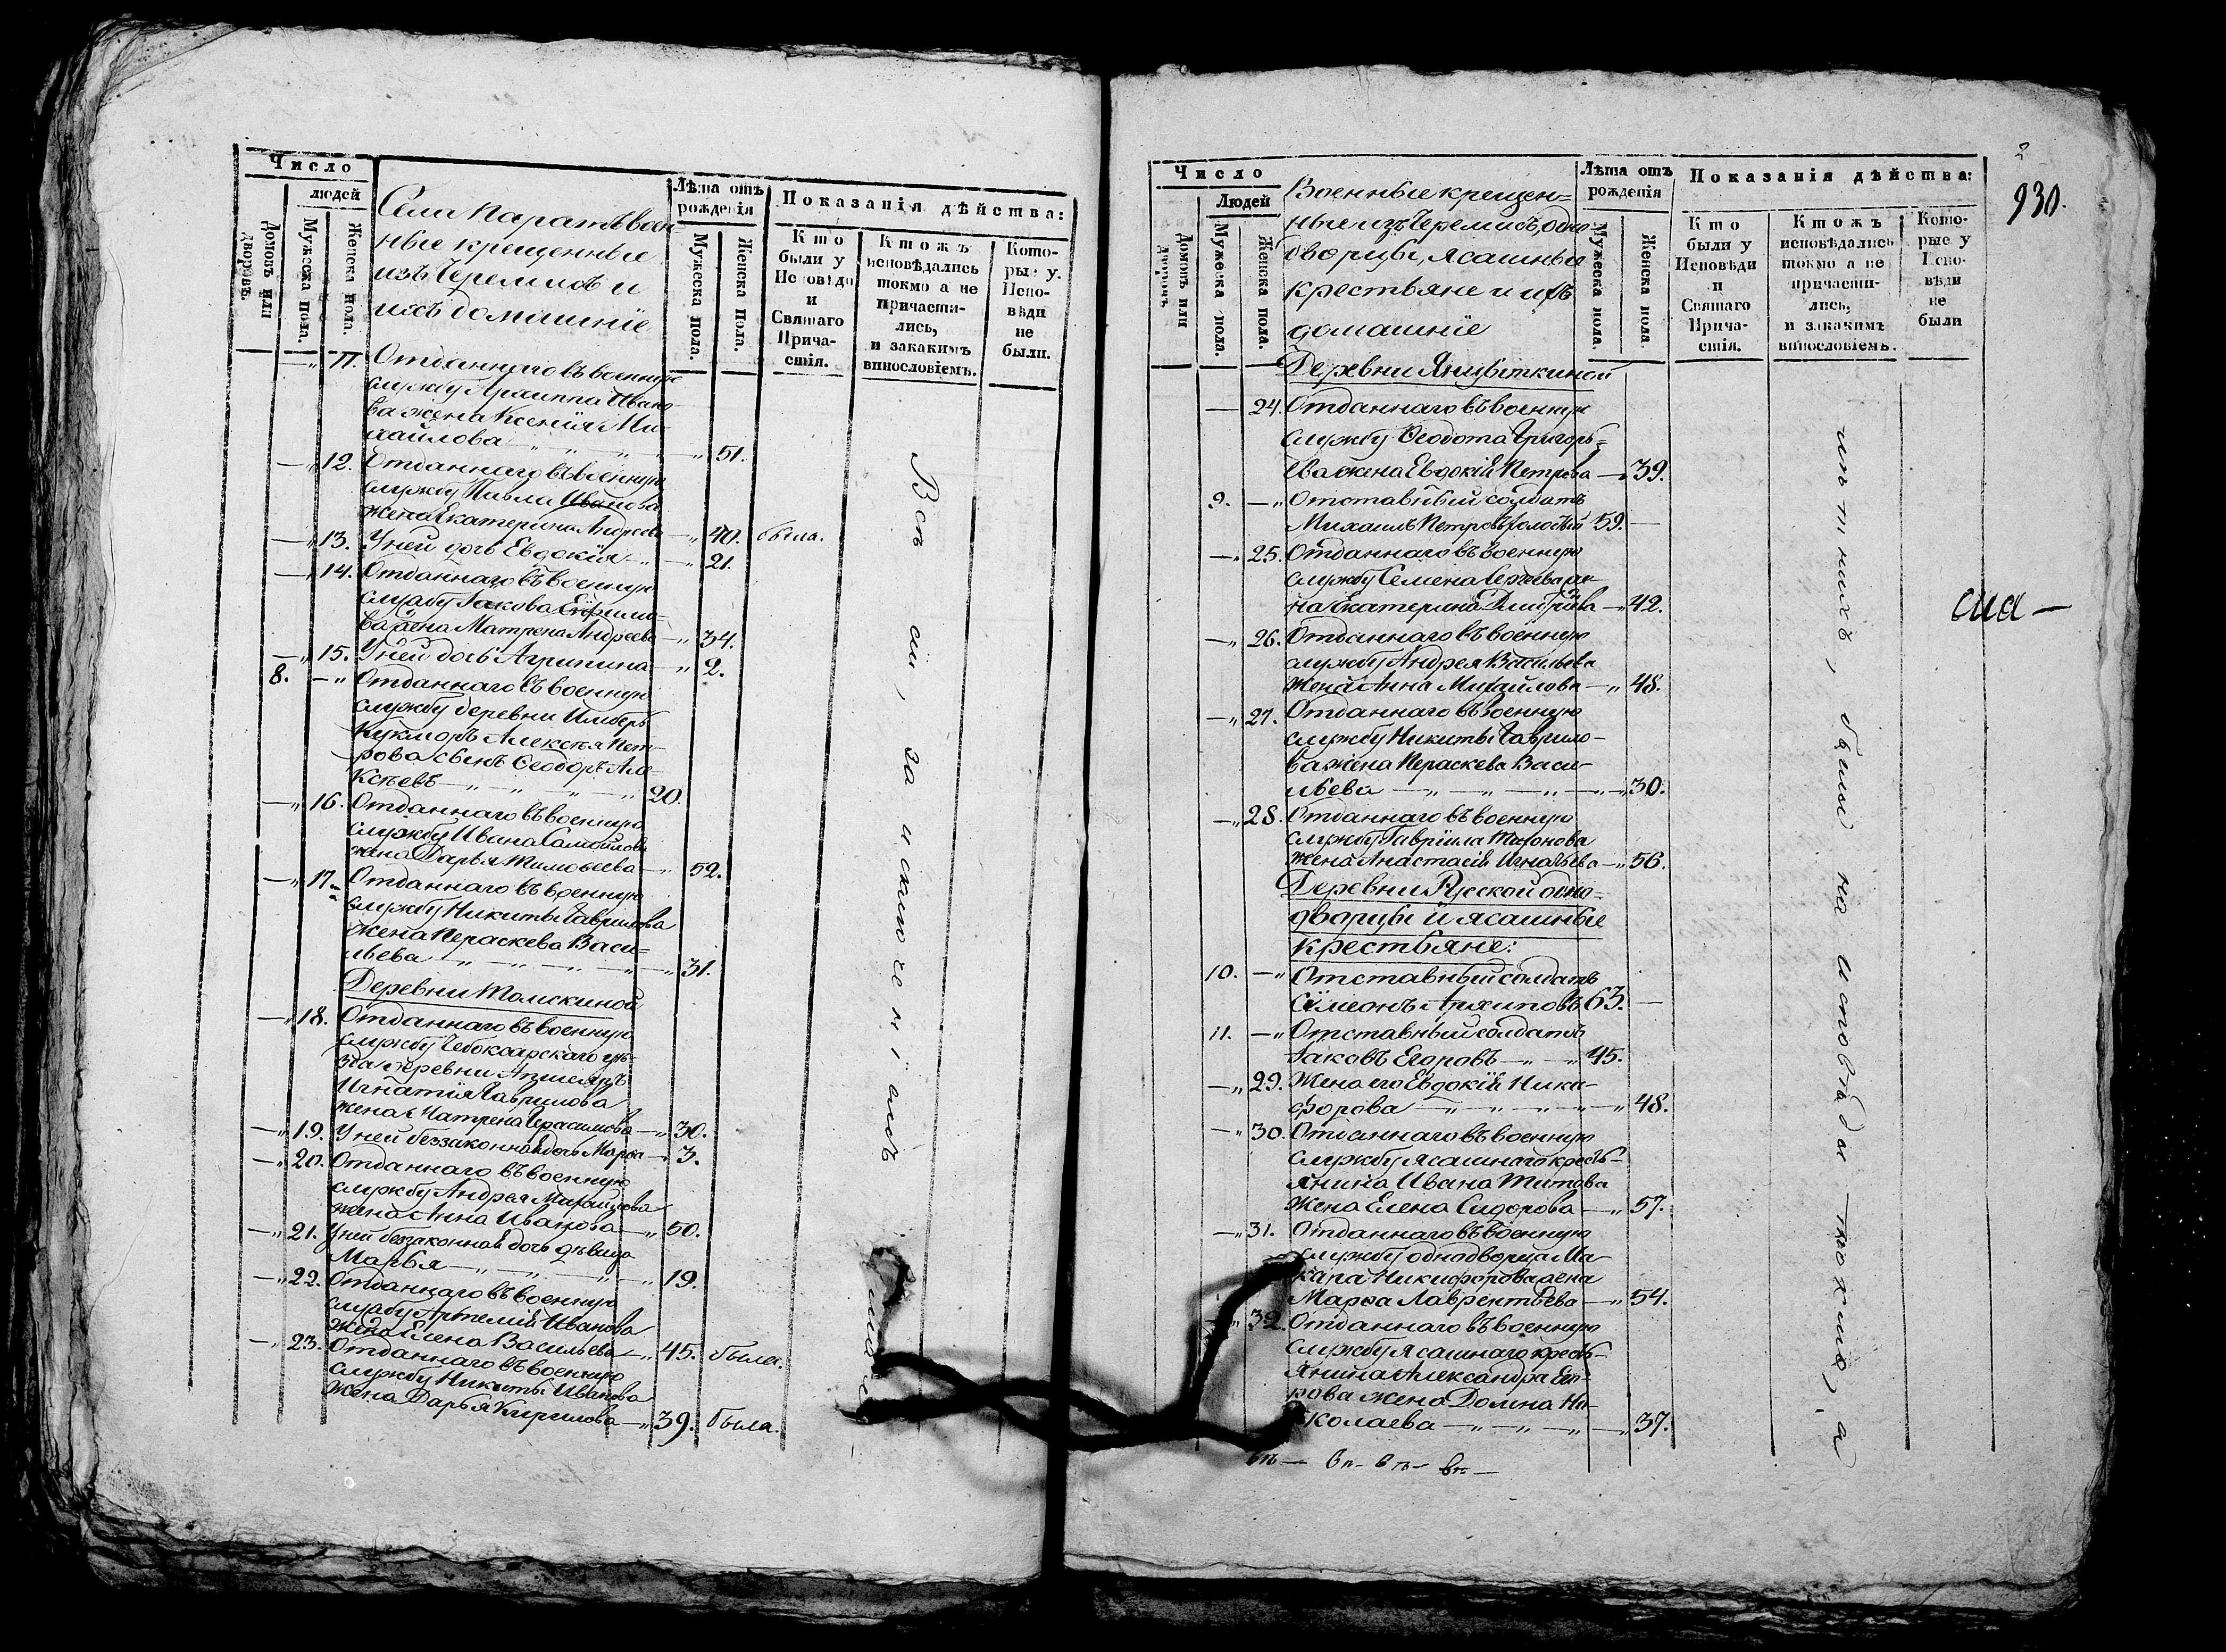 Число
людей
Домовъ или дворовъ.
Мужеска пола.
Женска пола.
Села Паратъ воен-
ные крещенные
изъ Черемисъ и
ихъ домашніе
Лѣта отъ
рожденія
Мужеска пола.
Женска пола.
Показанія дѣйства:
Кто
были у
Исповѣди
и
Святаго
Прича-
стія.
Ктожъ
исповѣдались
токмо а не
причасти-
лись,
и закакимъ
винословіемъ.
Кото-
рые у
Испо-
вѣди
не
были.
— „ 11. Отданнаго въ военную
службу Архиппа Ивано-
ва жена Ксенія Ми-
хайлова — „ 51.
— „ 12. Отданнаго въ военную
службу Павла Иванова
жена Екатерина Андреева — „ 40. была.
— „ 13. У ней дочь Евдокія — „ 21.
— „ 14. Отданнаго въ военную
службу Іакова Ефимо-
ва жена Матрена Андреева — „ 34.
— „ 15. У ней дочь Агрипина — „ 2.
8. — „ Отданнаго въ военную
службу деревни
Кукморъ Алексѣя Пет-
рова сынъ Ѳеодоръ Але-
ксѣевъ — „ — „ — „ 20.
— „ 16. Отданнаго въ военную
службу Ивана Самойлова
жена Дарья Тимоѳеева — „ 52.
— „ 17. Отданнаго въ военную
службу Никиты Гаврилова
жена Параскева Васи-
льева — „ — „ — „ 31.
Деревни Томскиной
— „ 18. Отданнаго въ военную
службу Чебоксарскаго уѣ-
зда деревни
Игнатія Гаврилова
жена Матрена Герасимова — „ 30.
— „ 19. У ней беззаконная дочь Марѳа — „ 3.
— „ 20. Отданнаго въ военную
службу Андрея Михайлова
жена Анна Иванова — „ 50.
— „ 21. У ней беззаконная дочь дѣвица
Марья — „ — „ 19.
— „ 22. Отданнаго въ военную
службу Артемія Иванова
жена Елена Васильева — „ 45. была.
— „ 23. Отданнаго въ военную
службу Никиты Иванова
жена Дарья Кирилова — „ 39. была.
Всѣ сіи, за исключеніемъ
Число
Людей
Домовъ или дворовъ
Мужеска пола.
Женска пола.
Военные крещен-
ные изъ Черемисъ, одно-
дворцы, ясашные
крестьяне и ихъ
домашніе
Лѣта отъ
рожденія
Мужеска пола.
Женска пола.
Показанія дѣйства:
Кто
были у
Исповѣди
и
Святаго
Прича-
стія.
Ктожъ
исповѣдались
токмо а не
причасти-
лись,
и закакимъ
винословіемъ.
Кото-
рые у
Испо-
вѣди
не
были
2
930.
Деревни Янцыткиной
— 24. Отданнаго въ военную
службу Ѳеодота Григорь-
ева жена Евдокія Петрова — „ 39.
9. — „ Отставный солдатъ
Михаилъ Петровъ холостый 59. —
— „ 25. Отданнаго въ военную
службу Семена Сергѣева же-
на Екатерина Дмитріева — „ 42.
— „ 26. Отданнаго въ военную
службу Андрея Васильева
жена Анна Михайлова — „ 48.
— „ 27. Отданнаго въ военную
службу Никиты Гаврило-
ва жена Параскева Васи-
льева — „ — „ — „ 30.
— „ 28. Отданнаго въ военную
службу Гавріила Тихонова
жена Анастасія Игнатьева — „ 56.
Деревни Русской одно-
дворцы и ясашные
крестьяне:
10. — „ Отставный солдатъ
Симеонъ Архиповъ 63. —
11. — „ Отставный солдатъ
Іаковъ Егоровъ — „ — „ 45.
— „ 29. Жена его Евдокія Ники-
форова — „ — „ — „ 48.
— „ 30. Отданнаго въ военную
службу ясашнаго кресть-
янина Ивана Титова
жена Елена Сидорова — „ 57.
— „ 31. Отданнаго въ военную
службу однодворца Ма-
кара Никифорова жена
Марѳа Лаврентьева — „ 54.
„ 32. Отданнаго въ военную
службу ясашнаго кресть-
янина Александра
рова жена Домна Ни-
колаева — „ — „ — „ 37.
были на исповѣди токмо, а
сиа —